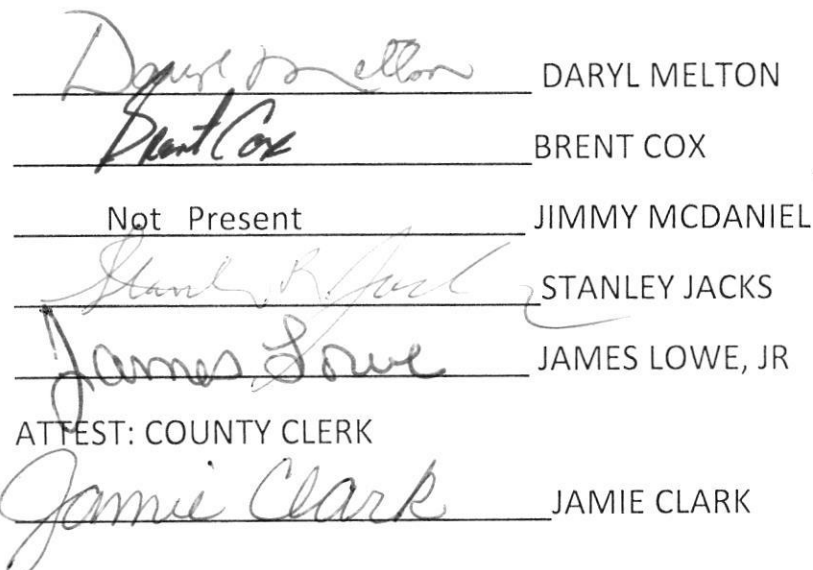 Daryl Melton DARYL MELTON
Brent Cox BRENT COX
Not Present JIMMY MCDANIEL
Stanley R. Jacks STANLEY JACKS
James Lowe JAMES LOWE, JR
ATTEST: COUNTY CLERK
Jamie Clark JAMIE CLARK